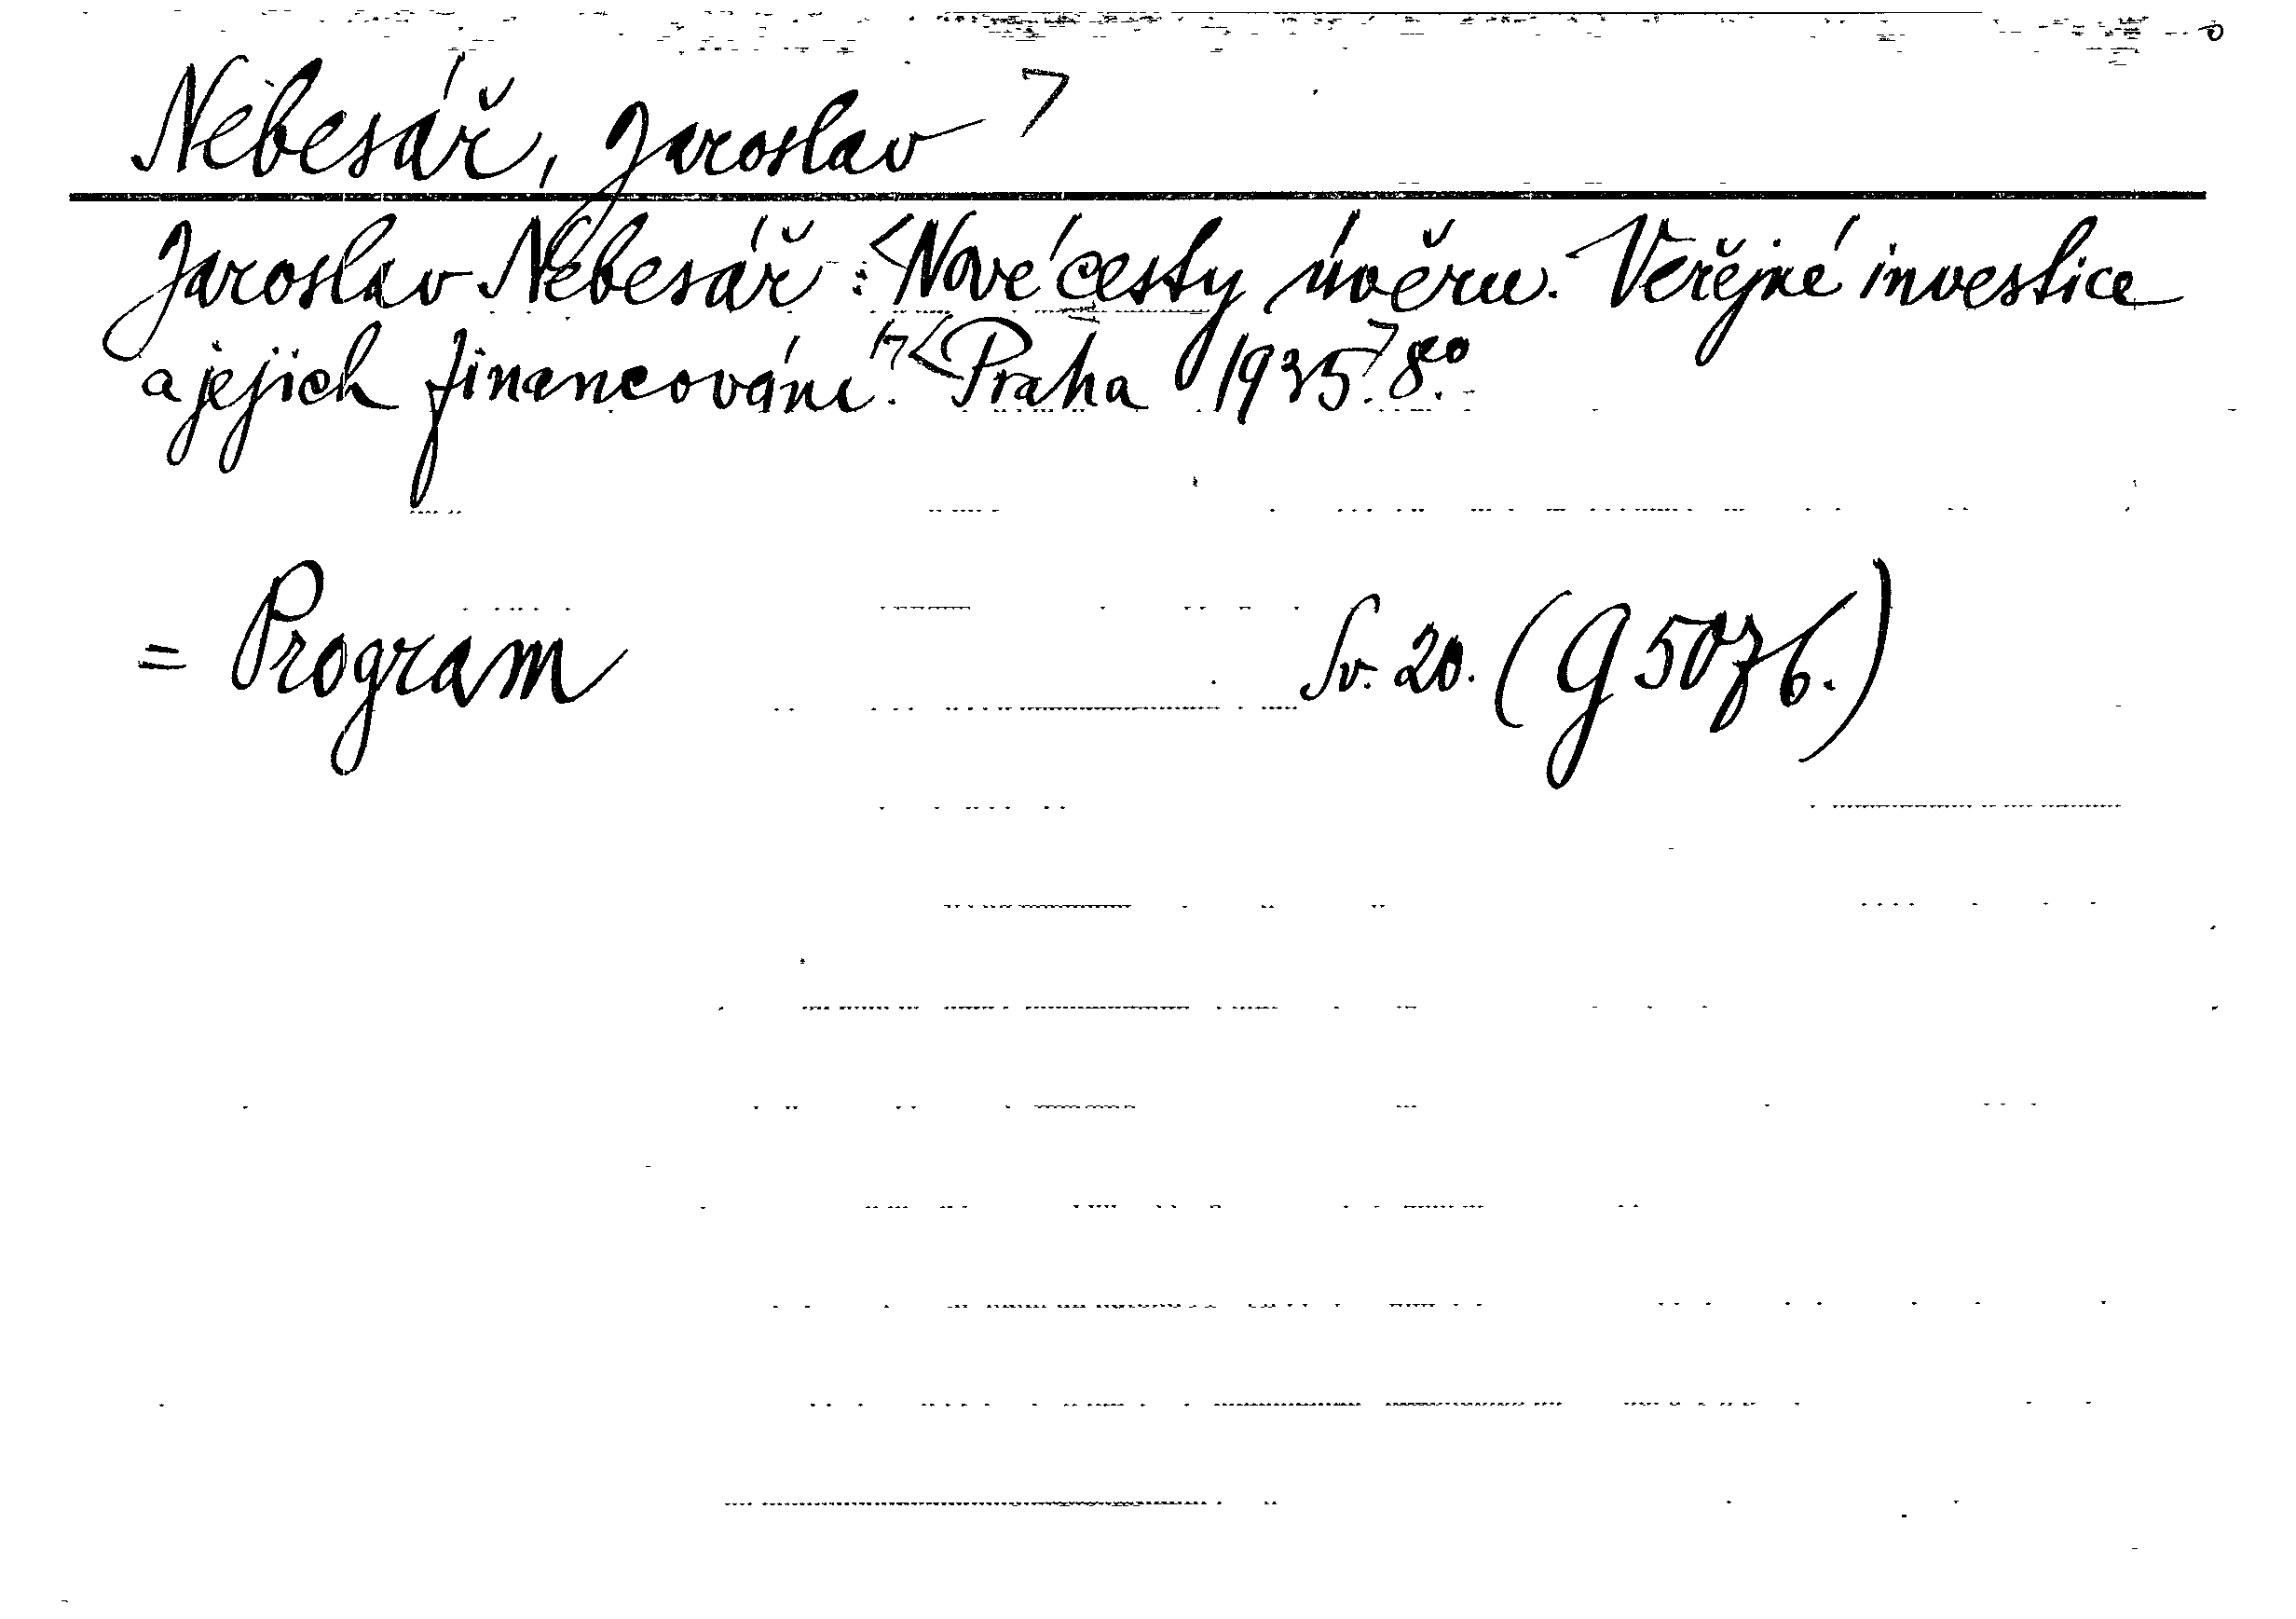 Nebesář, Jaroslav
Jaroslav Nebesář : Nové cesty úvěru. Veřejné investice
a jejich financování. Praha 1935. 8°.
= Program Sv. 20. (G 5076.)